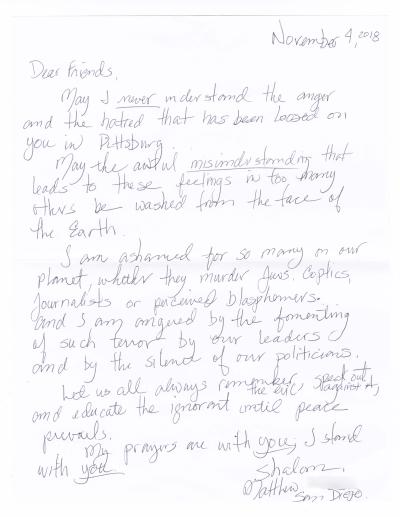 November 4, 2018
Dear Friends,
May I never understand the anger
and the hatred that has been loosed on
you in Pittsburg.
May the awful misunderstanding that
leads to these feelings in too many
others be washed from the face of
the Earth.
I am ashamed for so many on our
planet, whether they murder Jews, Coptics,
journalists or perceived blasphemers.
and I am angered by the fomenting
of such terror by our leaders
and by the silence of our politicians.
Let us all always remember the evil, speak out against it,
and educate the ignorant until peace
prevails.
My prayers are with you, I stand
with you
Shalom,
Matthew
San Diego